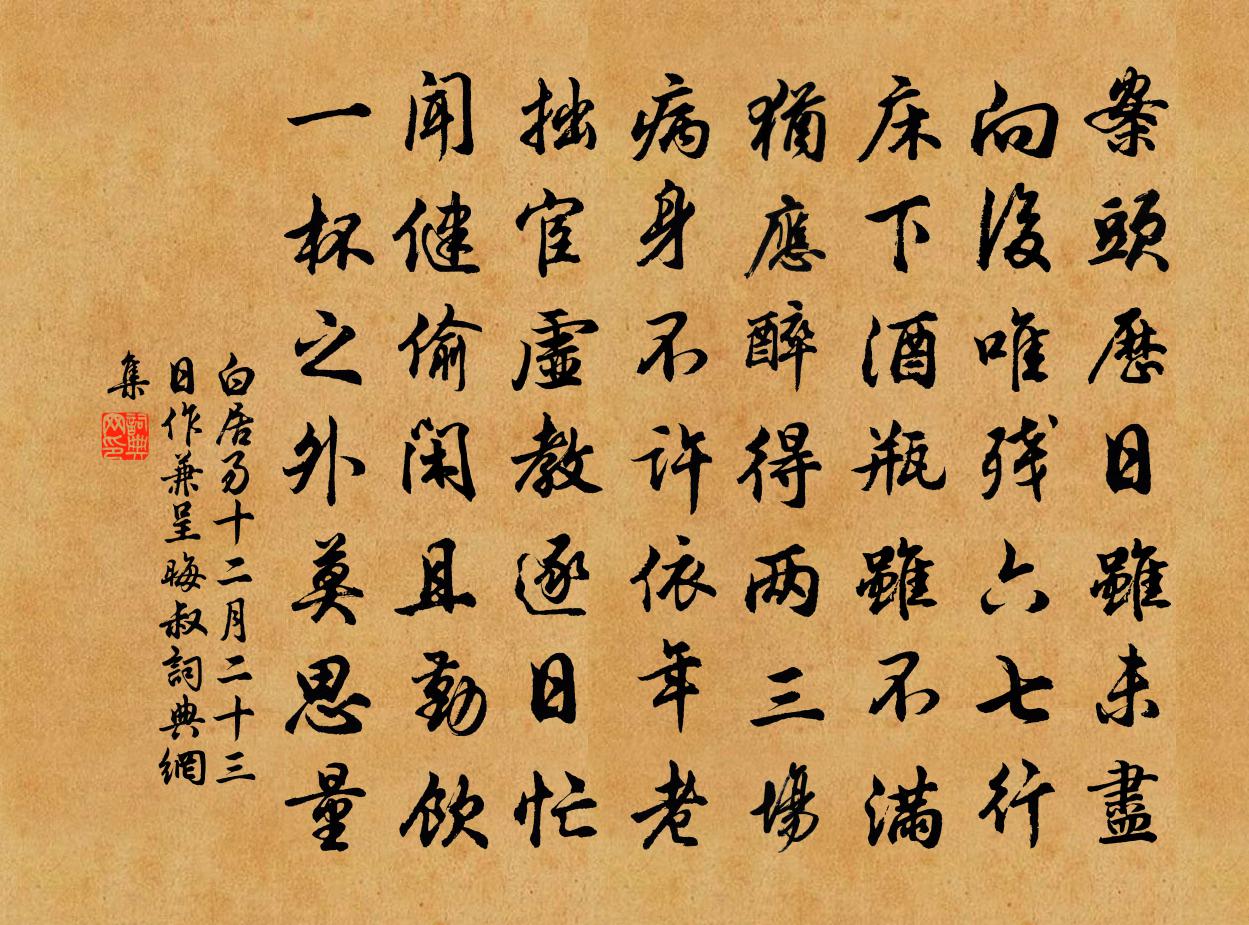 案頭歷日雖未盡
向後唯残六七行
床下酒瓶雖不滿
猶應醉得两三場
病身不許依年老
拙宦虛教逐日忙
聞健偷閑且勤飲
一杯之外莫思量
白居易十二月二十三
日作兼呈晦叔詞典網
集
詞典网印